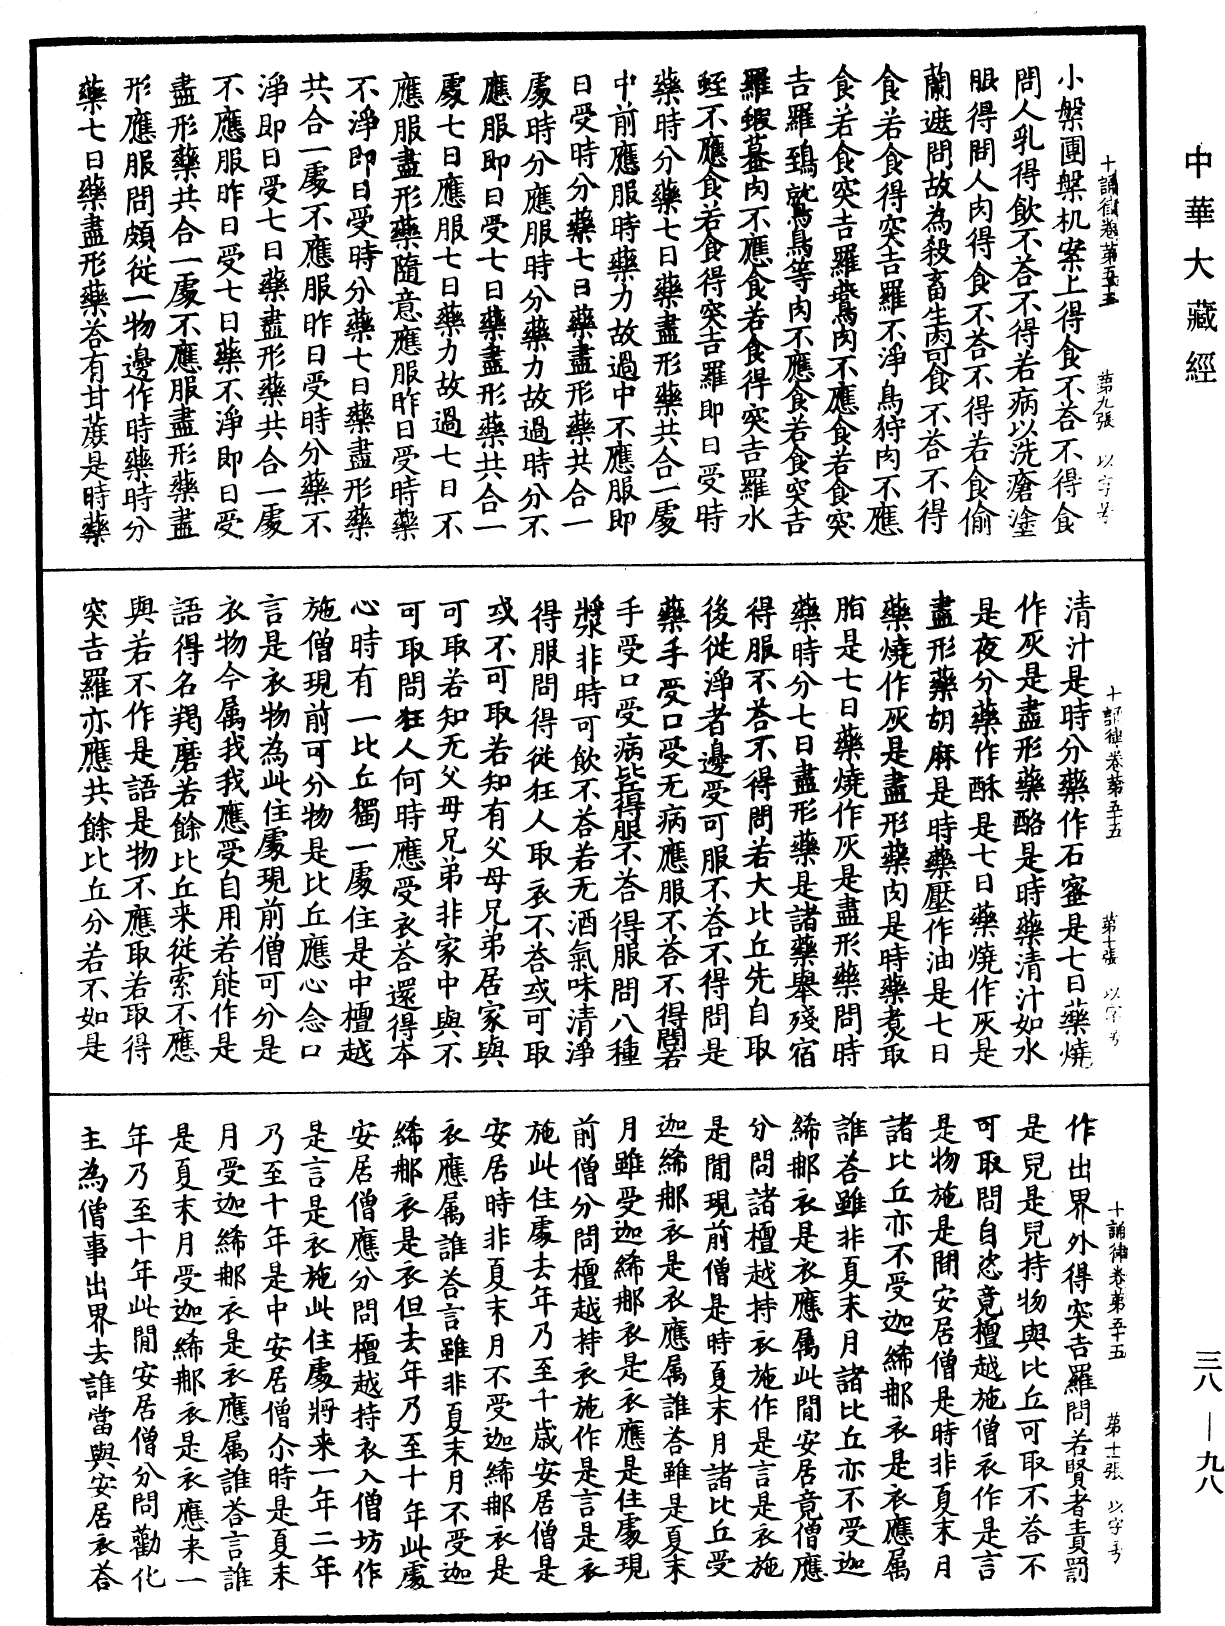 中華大藏經
小槃團槃机案上得食不荅不得食
問人乳得飲不荅不得若病以洗瘡塗
眼得問人肉得食不荅不得若食偷
蘭遮問故為殺畜生肉可食不荅不得
食若食得突吉羅不淨鳥狩肉不應
食若食突吉羅鵄肉不應食若食突
吉羅鵄鷲鳥等肉不應食若食突吉
羅蝦蟇肉不應食若食得突吉羅水
蛭不應食若食得突吉羅即日受時
藥時分藥七日藥盡形藥共合一處
中前應服時藥力故過中不應服即
日受時分藥七日藥盡形藥共合一
處時分應服時分藥力故過時分不
應服即日受七日藥盡形藥共合一
處七日應服七日藥力故過七日不
應服盡形藥隨意應服昨日受時藥
不淨即日受時分藥七日藥盡形藥
共合一處不應服昨日受時分藥不
淨即日受七日藥盡形藥共合一處
不應服昨日受七日藥不淨即日受
盡形藥共合一處不應服盡形藥盡
形應服問頗從一物邊作時藥時分
藥七日藥盡形藥荅有甘蔗是時藥
十誦律卷第五十五 第九張 以字号
清汁是時分藥作石蜜是七日藥燒
作灰是盡形藥酪是時藥清汁如水
是夜分藥作酥是七日藥燒作灰是
盡形藥胡麻是時藥壓作油是七日
藥燒作灰是盡形藥肉是時藥煑取
脂是七日藥燒作灰是盡形藥問時
藥時分七日盡形藥是諸藥舉殘宿
得服不荅不得問若大比丘先自取
後從淨者邊受可服不荅不得問是
藥手受口受无病應服不荅不得問若
手受口受病皆得服不荅得服問八種
漿非時可飲不荅若无酒氣味清淨
得服問得從狂人取衣不荅或可取
或不可取若知有父母兄弟居家與
可取若知无父母兄弟非家中與不
可取問狂人何時應受衣荅還得本
心時有一比丘獨一處住是中檀越
施僧現前可分物是比丘應心念口
言是衣物為此住處現前僧可分是
衣物今属我我應受自用若能作是
語得名羯磨若餘比丘来從索不應
與若不作是語是物不應取若取得
突吉羅亦應共餘比丘分若不如是
十誦律卷第五十五 第十張 以字号
作出界外得突吉羅問若賢者責罰
是兒是兒持物與比丘可取不荅不
可取問自恣竟檀越施僧衣作是言
是物施是間安居僧是時非夏末月
諸比丘亦不受迦絺那衣是衣應属
誰荅雖非夏末月諸比丘亦不受迦
絺那衣是衣應属此間安居竟僧應
分問諸檀越持衣施作是言是衣施
是間現前僧是時夏末月諸比丘受
迦絺那衣是衣應属誰荅雖是夏末
月雖受迦絺那衣是衣應是住處現
前僧分問檀越持衣施作是言是衣
施此住處去年乃至千歲安居僧是
安居時非夏末月不受迦絺那衣是
衣應属誰荅言雖非夏末月不受迦
絺那衣是衣但去年乃至十年此處
安居僧應分問檀越持衣入僧坊作
是言是衣施此住處將来一年二年
乃至十年是中安居僧尒時是夏末
月受迦絺那衣是衣應属誰荅言誰
是夏末月受迦絺那衣是衣應来一
年乃至十年此間安居僧分問勸化
主為僧事出界去誰當與安居衣荅
十誦律卷第五十五 第十一張 以字号
三八—九八